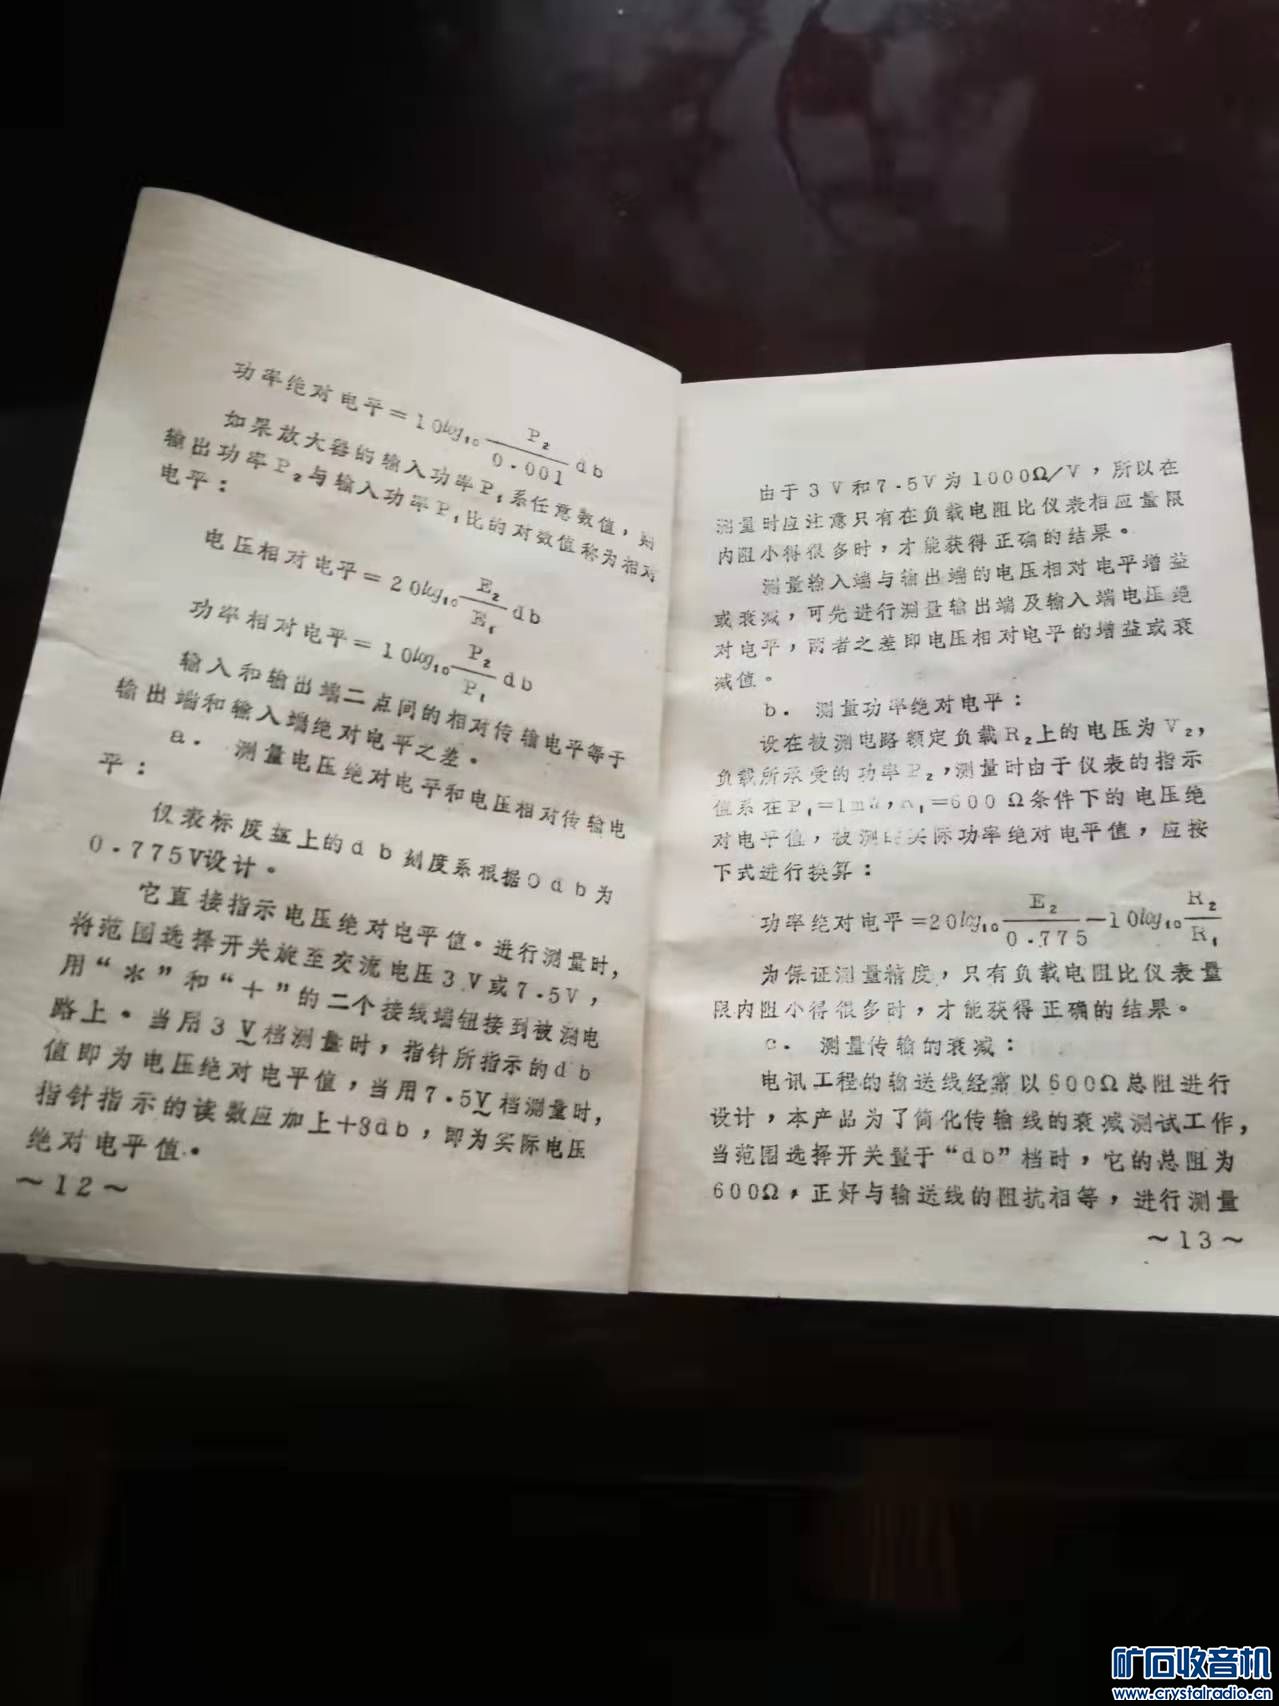 功率绝对电平=10log₁₀ P₂/0.001 db
如果放大器的输入功率P₁系任意数值，则
输出功率P₂与输入功率P₁比的对数值称为相对
电平：
电压相对电平=20log₁₀ E₂/E₁ db
功率相对电平=10log₁₀ P₂/P₁ db
输入和输出端二点间的相对传输电平等于
输出端和输入端绝对电平之差。
a. 测量电压绝对电平和电压相对传输电
平：
仪表标度盘上的db刻度系根据0db为
0.775V设计。
它直接指示电压绝对电平值。进行测量时，
将范围选择开关旋至交流电压3V或7.5V，
用“*”和“+”的二个接线端钮接到被测电
路上。当用3V档测量时，指针所指示的db
值即为电压绝对电平值，当用7.5V档测量时，
指针指示的读数应加上+8db，即为实际电压
绝对电平值。
～12～
由于3V和7.5V为1000Ω/V，所以在
测量时应注意只有在负载电阻比仪表相应量限
内阻小得很多时，才能获得正确的结果。
测量输入端与输出端的电压相对电平增益
或衰减，可先进行测量输出端及输入端电压绝
对电平，两者之差即电压相对电平的增益或衰
减值。
b. 测量功率绝对电平：
设在被测电路额定负载R₂上的电压为V₂，
负载所承受的功率P₂，测量时由于仪表的指示
值系在P₁=1mW，R₁=600Ω条件下的电压绝
对电平值，被测的实际功率绝对电平值，应按
下式进行换算：
功率绝对电平=20log₁₀ E₂/0.775 －10log₁₀ R₂/R₁
为保证测量精度，只有负载电阻比仪表量
限内阻小得很多时，才能获得正确的结果。
c. 测量传输的衰减：
电讯工程的输送线经常以600Ω总阻进行
设计，本产品为了简化传输线的衰减测试工作，
当范围选择开关置于“db”档时，它的总阻为
600Ω，正好与输送线的阻抗相等，进行测量
～13～
矿石收音机
www.crystalradio.cn